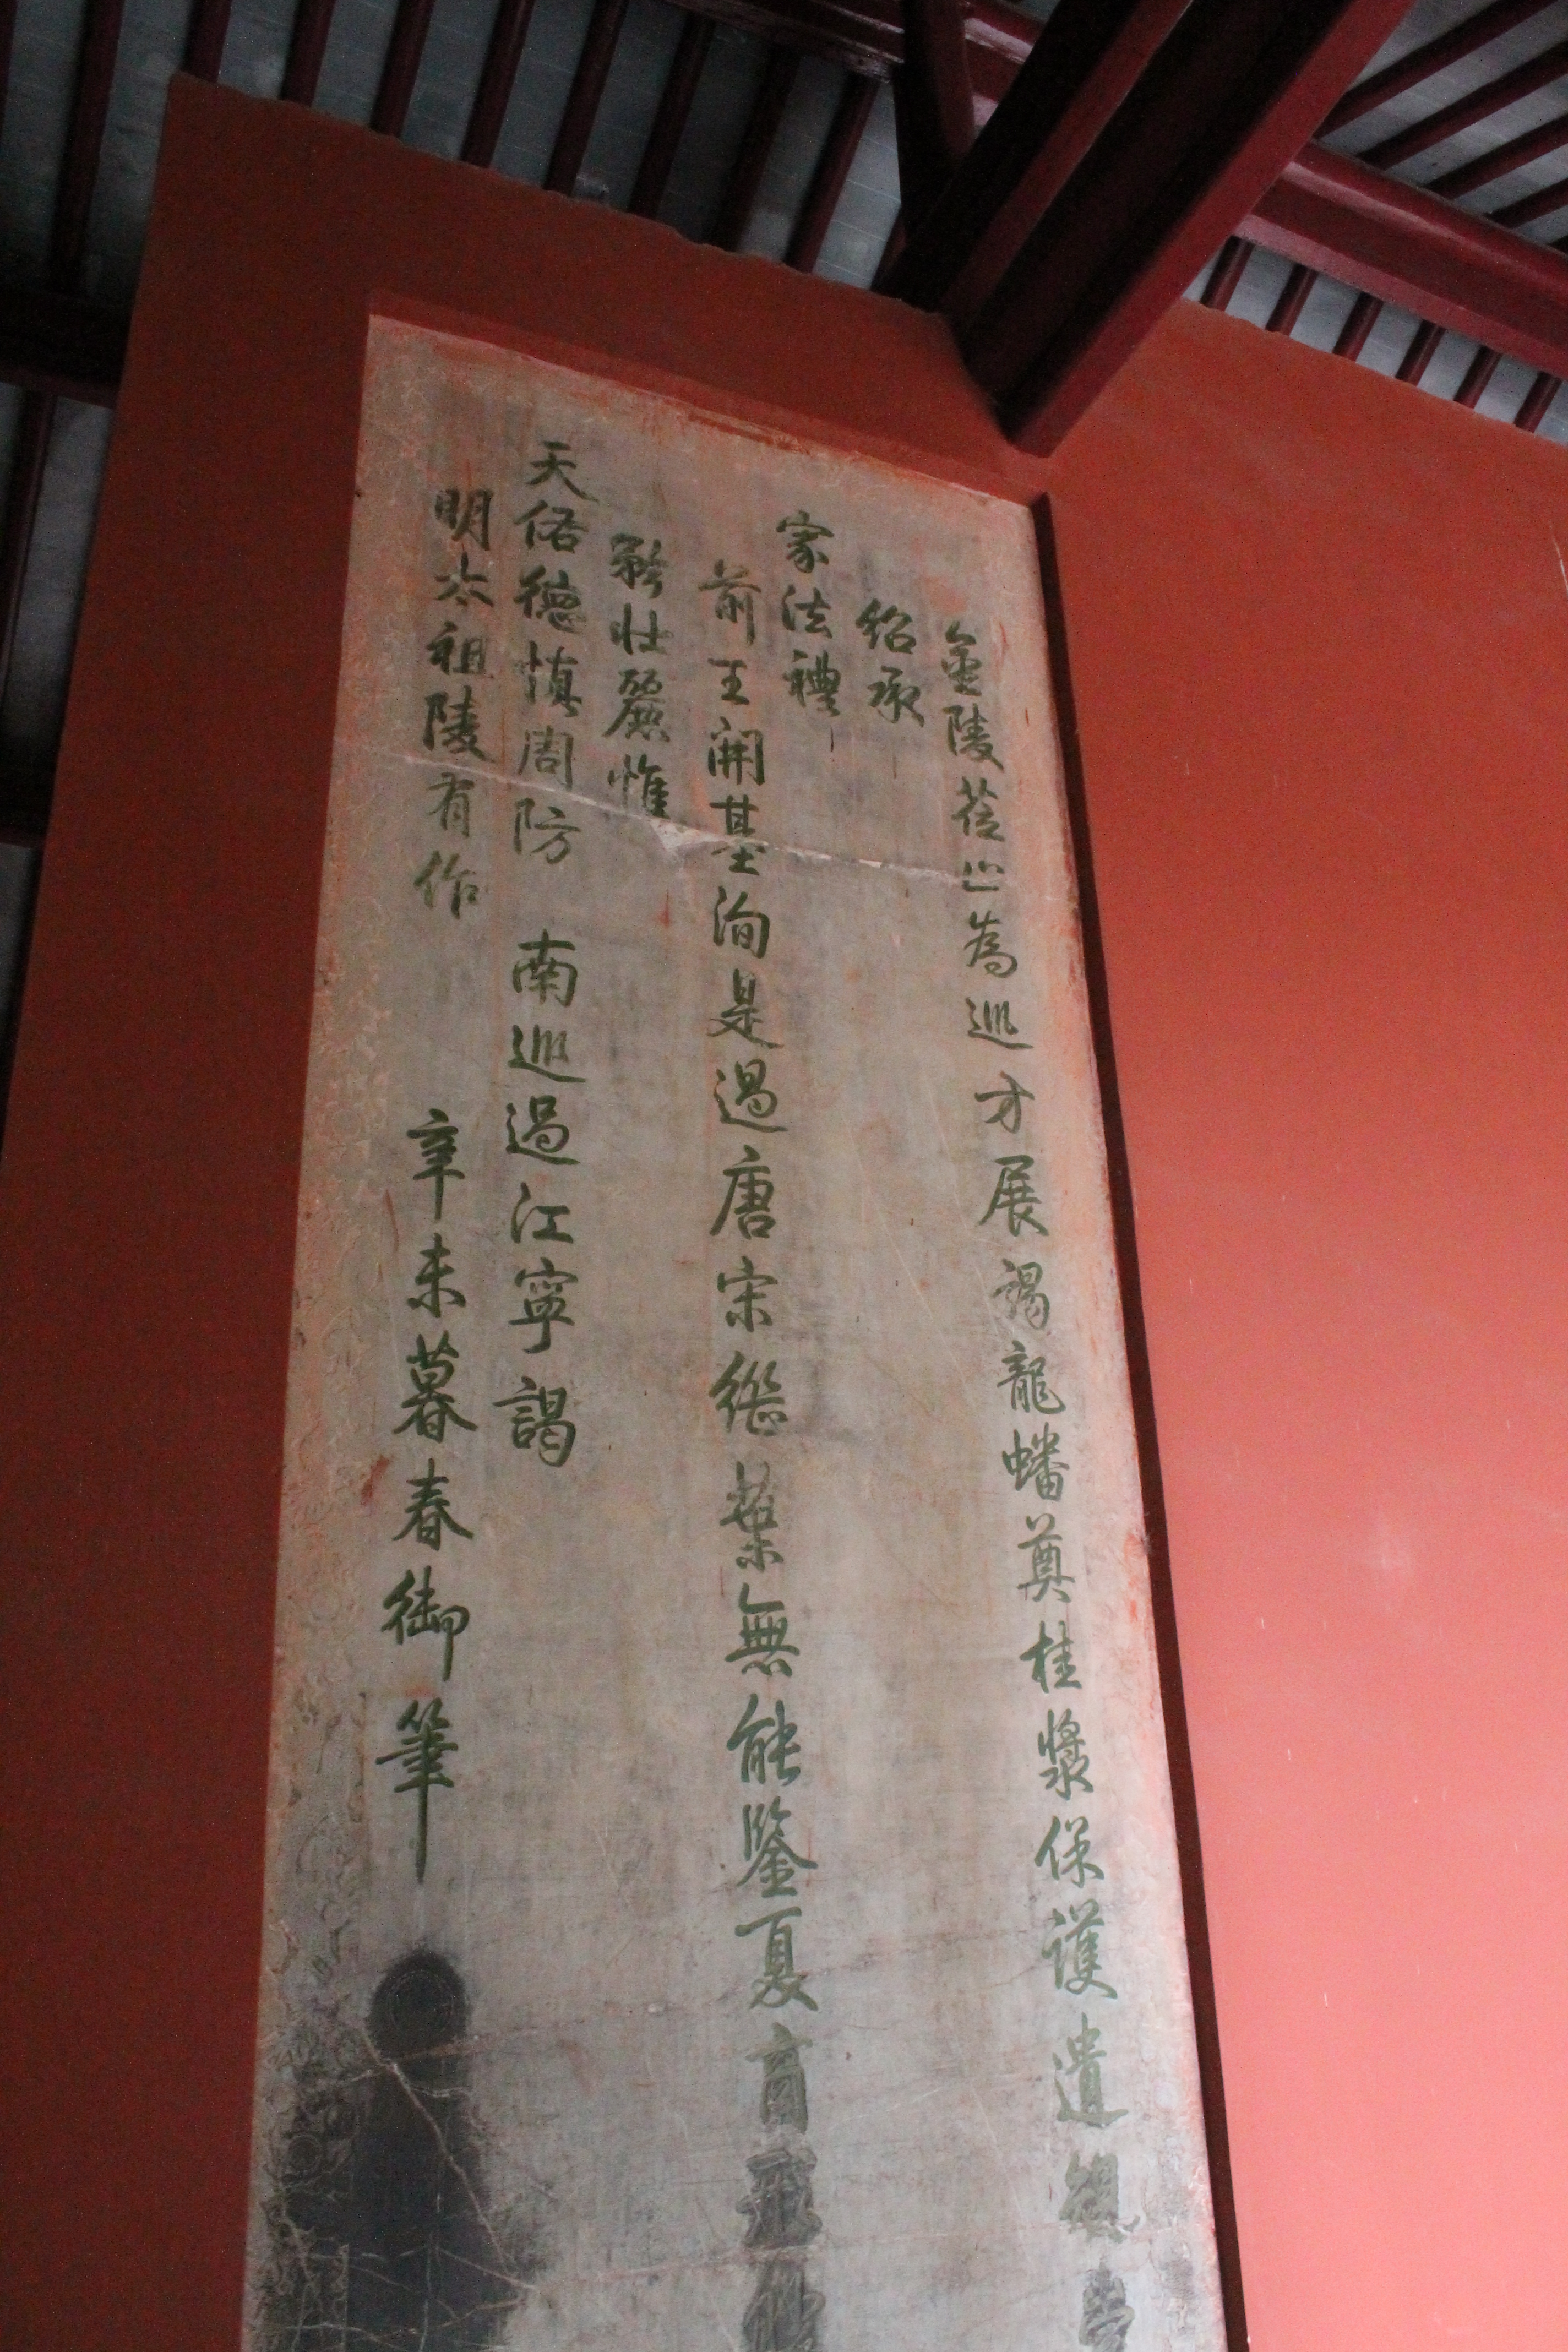 金陵莅止為巡方展謁龍蟠奠桂漿保護遺
紹承
家法禮
前王開基洵是過唐宋繼業無能鑒夏商
矜壯麗惟
天佑德慎周防 南巡過江寧謁
明太祖陵有作 辛未暮春御筆